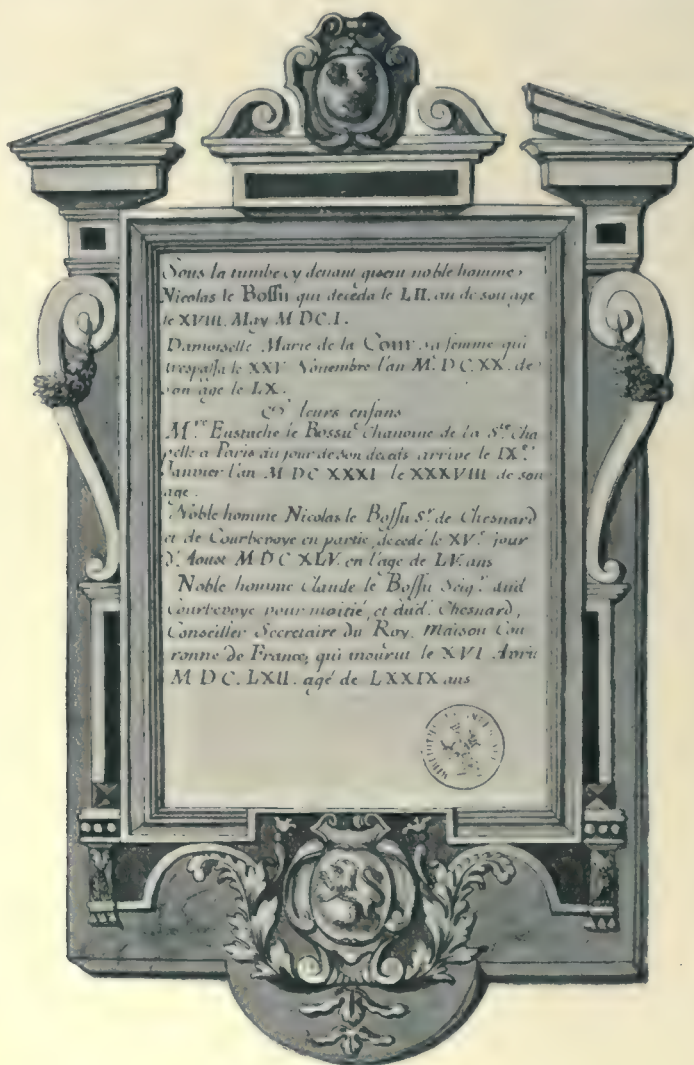 Sous la tumbe cy deuant gisent noble homme
Nicolas le Bossu qui deceda le LII. an de son age
le XVIII. May M DC. I.
Damoiselle Marie de la Cour sa femme qui
trespassa le XXV Nouembre l'an M. DC XX. de
son age le LX.
& leurs enfans
M.re Eustache le Bossu Chanoine de la S.te Cha
pelle a Paris au jour de son deceds arrive le IX.e
Janvier l'an M DC XXXI le XXXVIII de son
age.
Noble homme Nicolas le Bossu S.r de Chesnard
et de Courbevoye en partie, decedé le XV.e jour
d'Aoust M DC XLV. en l'age de LV. ans
Noble homme Claude le Bossu Seig.r dud
Courbevoye pour moitié, et dud. Chesnard,
Conseiller Secretaire du Roy. Maison Cou
ronne de France, qui mourut le XVI Avril
M D C. LXII. agé de LXXIX ans